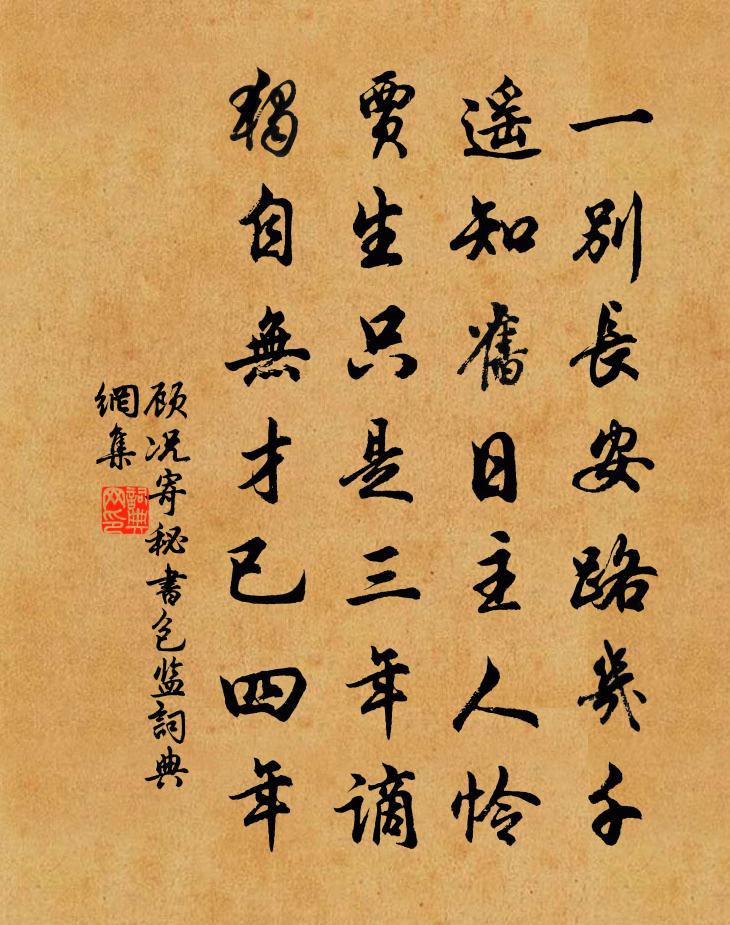 一別長安路幾千
遙知舊日主人憐
賈生只是三年謫
獨自無才已四年
顾况寄秘書包监詞典
網集
詞典
网印